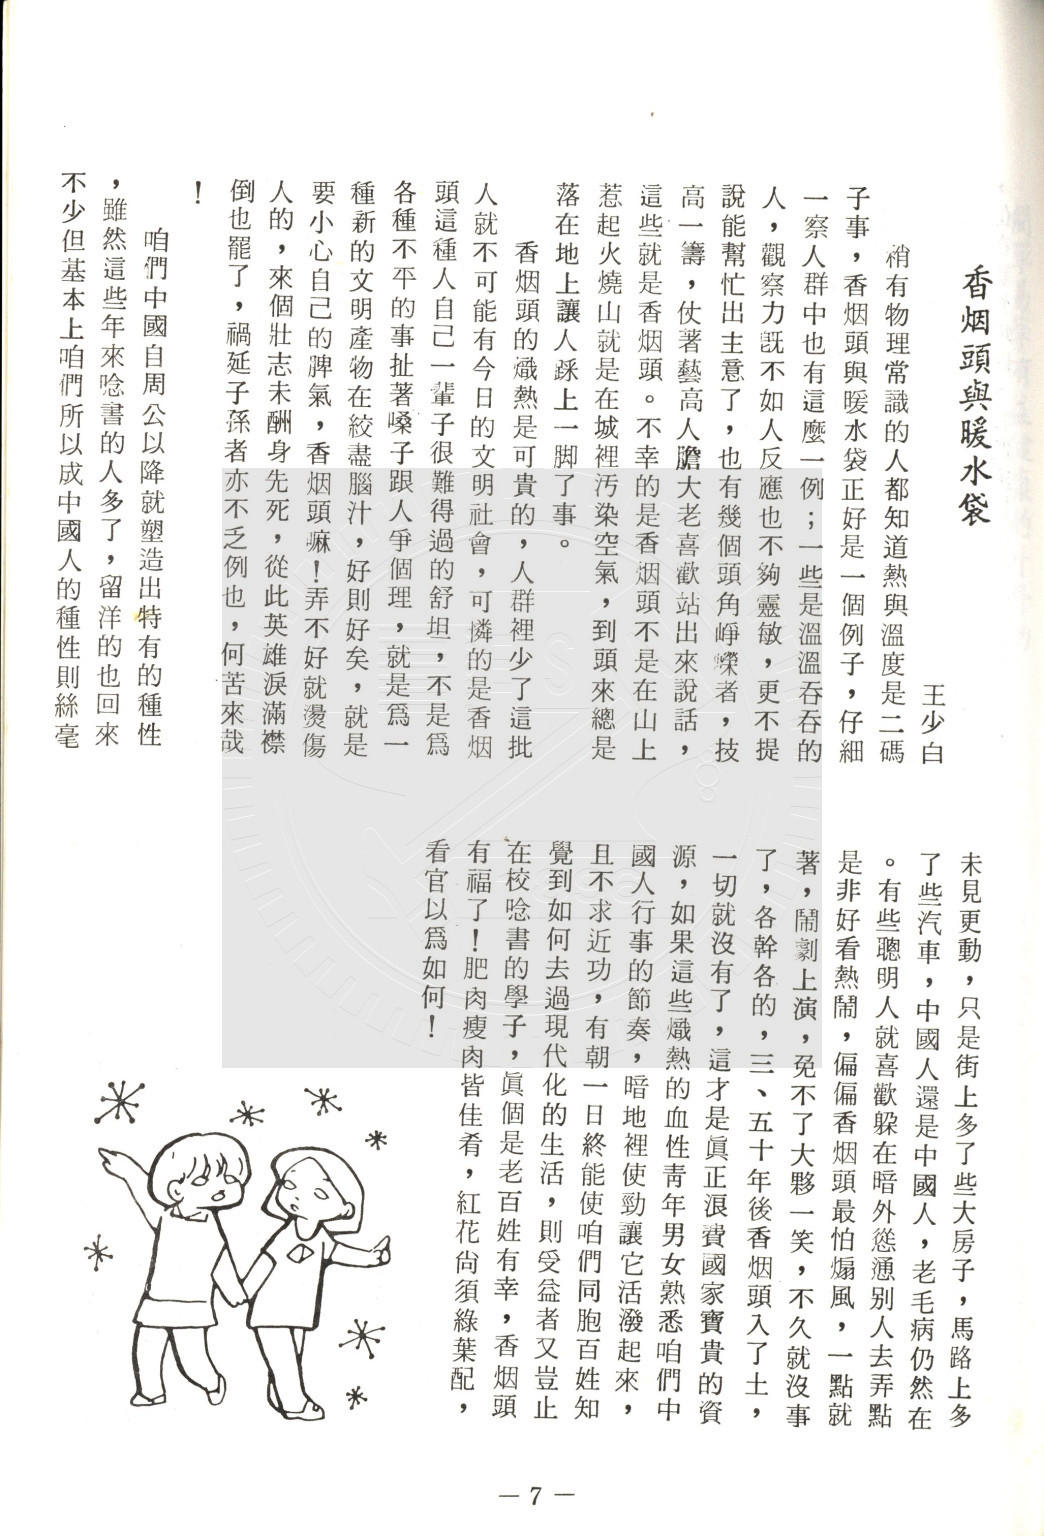 香烟頭與暖水袋
王少白
稍有物理常識的人都知道熱與溫度是二碼
子事，香烟頭與暖水袋正好是一個例子，仔細
一察人群中也有這麼一例；一些是溫溫吞吞的
人，觀察力旣不如人反應也不夠靈敏，更不提
說能幫忙出主意了，也有幾個頭角崢嶸者，技
高一籌，仗著藝高人膽大老喜歡站出來說話，
這些就是香烟頭。不幸的是香烟頭不是在山上
惹起火燒山就是在城裡汚染空氣，到頭來總是
落在地上讓人踩上一脚了事。
香烟頭的熾熱是可貴的，人群裡少了這批
人就不可能有今日的文明社會，可憐的是香烟
頭這種人自己一輩子很難得過的舒坦，不是爲
各種不平的事扯著嗓子跟人爭個理，就是爲一
種新的文明產物在絞盡腦汁，好則好矣，就是
要小心自己的脾氣，香烟頭嘛！弄不好就燙傷
人的，來個壯志未酬身先死，從此英雄淚滿襟
倒也罷了，禍延子孫者亦不乏例也，何苦來哉
！
咱們中國自周公以降就塑造出特有的種性
，雖然這些年來唸書的人多了，留洋的也回來
不少但基本上咱們所以成中國人的種性則絲毫
未見更動，只是街上多了些大房子，馬路上多
了些汽車，中國人還是中國人，老毛病仍然在
。有些聰明人就喜歡躲在暗外慫恿别人去弄點
是非好看熱鬧，偏偏香烟頭最怕煽風，一點就
著，鬧劇上演，免不了大夥一笑，不久就沒事
了，各幹各的，三、五十年後香烟頭入了土，
一切就沒有了，這才是眞正浪費國家寶貴的資
源，如果這些熾熱的血性靑年男女熟悉咱們中
國人行事的節奏，暗地裡使勁讓它活潑起來，
且不求近功，有朝一日終能使咱們同胞百姓知
覺到如何去過現代化的生活，則受益者又豈止
在校唸書的學子，眞個是老百姓有幸，香烟頭
有福了！肥肉瘦肉皆佳肴，紅花尙須綠葉配，
看官以爲如何！
— 7 —